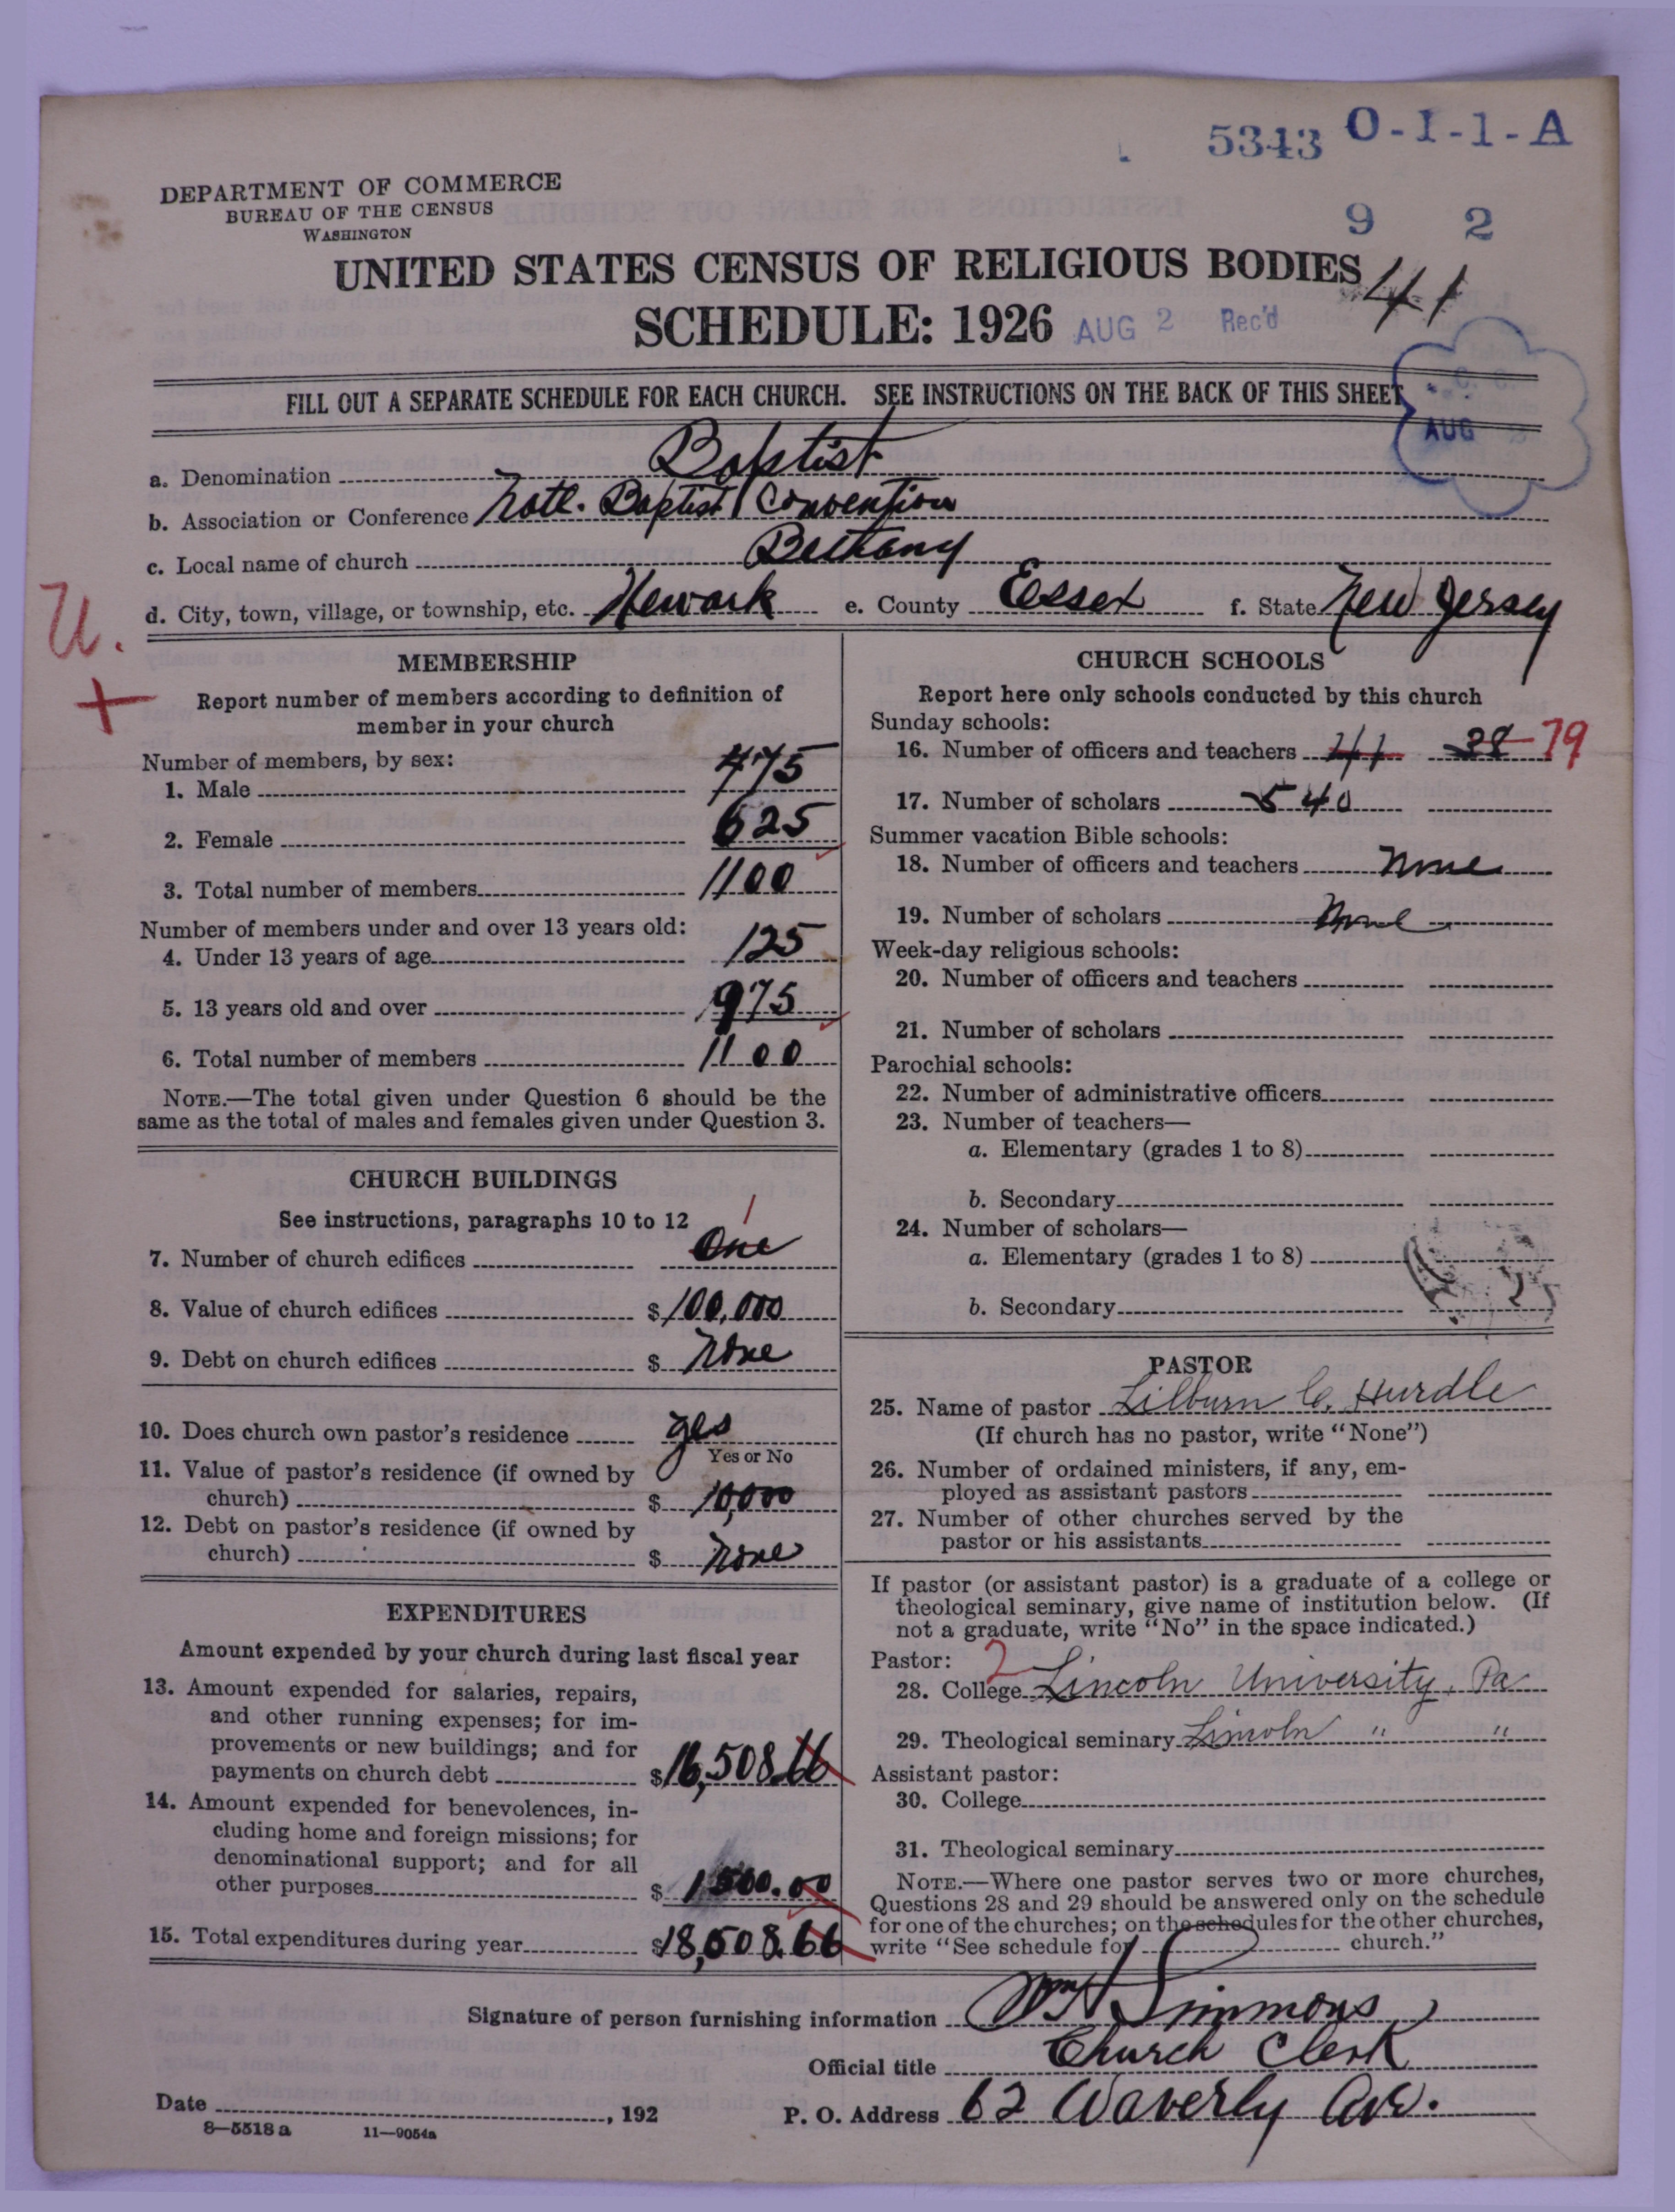 5343 O-I-1-A
DEPARTMENT OF COMMERCE
BUREAU OF THE CENSUS
WASHINGTON
9 2
UNITED STATES CENSUS OF RELIGIOUS BODIES
41
SCHEDULE: 1926 AUG 2 Rec'd
FILL OUT A SEPARATE SCHEDULE FOR EACH CHURCH. SEE INSTRUCTIONS ON THE BACK OF THIS SHEET
AUG
a. Denomination Baptist
b. Association or Conference Natl. Baptist Convention
c. Local name of church Bethany
d. City, town, village, or township, etc. Newark e. County Essex f. State New Jersey
U.
+
MEMBERSHIP
Report number of members according to definition of
member in your church
Number of members, by sex:
1. Male 475
2. Female 625
3. Total number of members 1100
Number of members under and over 13 years old:
4. Under 13 years of age 125
5. 13 years old and over 975
6. Total number of members 1100
NOTE.—The total given under Question 6 should be the
same as the total of males and females given under Question 3.
CHURCH BUILDINGS
See instructions, paragraphs 10 to 12
1
7. Number of church edifices One
8. Value of church edifices $100,000
9. Debt on church edifices $ None
10. Does church own pastor's residence yes
Yes or No
11. Value of pastor's residence (if owned by
church) $ 10,000
12. Debt on pastor's residence (if owned by
church) $ None
EXPENDITURES
Amount expended by your church during last fiscal year
13. Amount expended for salaries, repairs,
and other running expenses; for im-
provements or new buildings; and for
payments on church debt $16,508.66
14. Amount expended for benevolences, in-
cluding home and foreign missions; for
denominational support; and for all
other purposes $ 1500.00
15. Total expenditures during year $18,008.66
CHURCH SCHOOLS
Report here only schools conducted by this church
Sunday schools:
16. Number of officers and teachers 41 38 79
17. Number of scholars 540
Summer vacation Bible schools:
18. Number of officers and teachers None
19. Number of scholars None
Week-day religious schools:
20. Number of officers and teachers
21. Number of scholars
Parochial schools:
22. Number of administrative officers
23. Number of teachers—
a. Elementary (grades 1 to 8)
b. Secondary
24. Number of scholars—
a. Elementary (grades 1 to 8)
b. Secondary
PASTOR
25. Name of pastor Lilburn C. Hurdle
(If church has no pastor, write "None")
26. Number of ordained ministers, if any, em-
ployed as assistant pastors
27. Number of other churches served by the
pastor or his assistants
If pastor (or assistant pastor) is a graduate of a college or
theological seminary, give name of institution below. (If
not a graduate, write "No" in the space indicated.)
Pastor: 2
28. College Lincoln University, Pa
29. Theological seminary Lincoln " "
Assistant pastor:
30. College
31. Theological seminary
NOTE.—Where one pastor serves two or more churches,
Questions 28 and 29 should be answered only on the schedule
for one of the churches; on the schedules for the other churches,
write "See schedule for church."
Signature of person furnishing information Wm H Simmons
Official title Church Clerk
Date , 192 P. O. Address 62 Waverly Ave.
8—5518 a 11—9054a